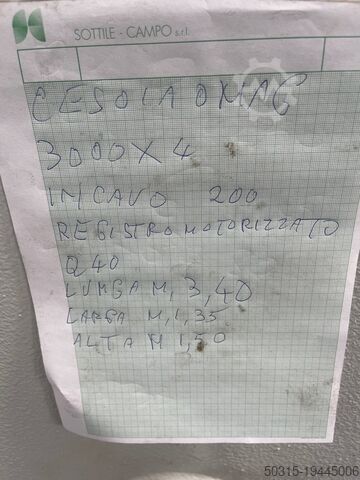 SOTTILE - CAMPO s.r.l.
CESOIA OMAG
3000 X 4
INCAVO 200
REGISTRO MOTORIZZATO
Q 40
LUNGA M, 3,40
LARGA M, 1,35
ALTA M 1,50
50315-19445006